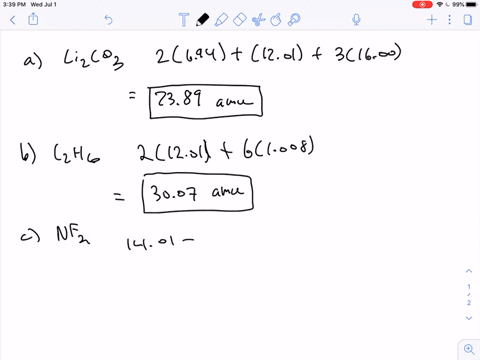 3:39 PM Wed Jul 1 99%
a) Li₂CO₃ 2(6.94) + (12.01) + 3(16.00)
= 73.89 amu
b) C₂H₆ 2(12.01) + 6(1.008)
= 30.07 amu
c) NF₂ 14.01 -
1
/
2